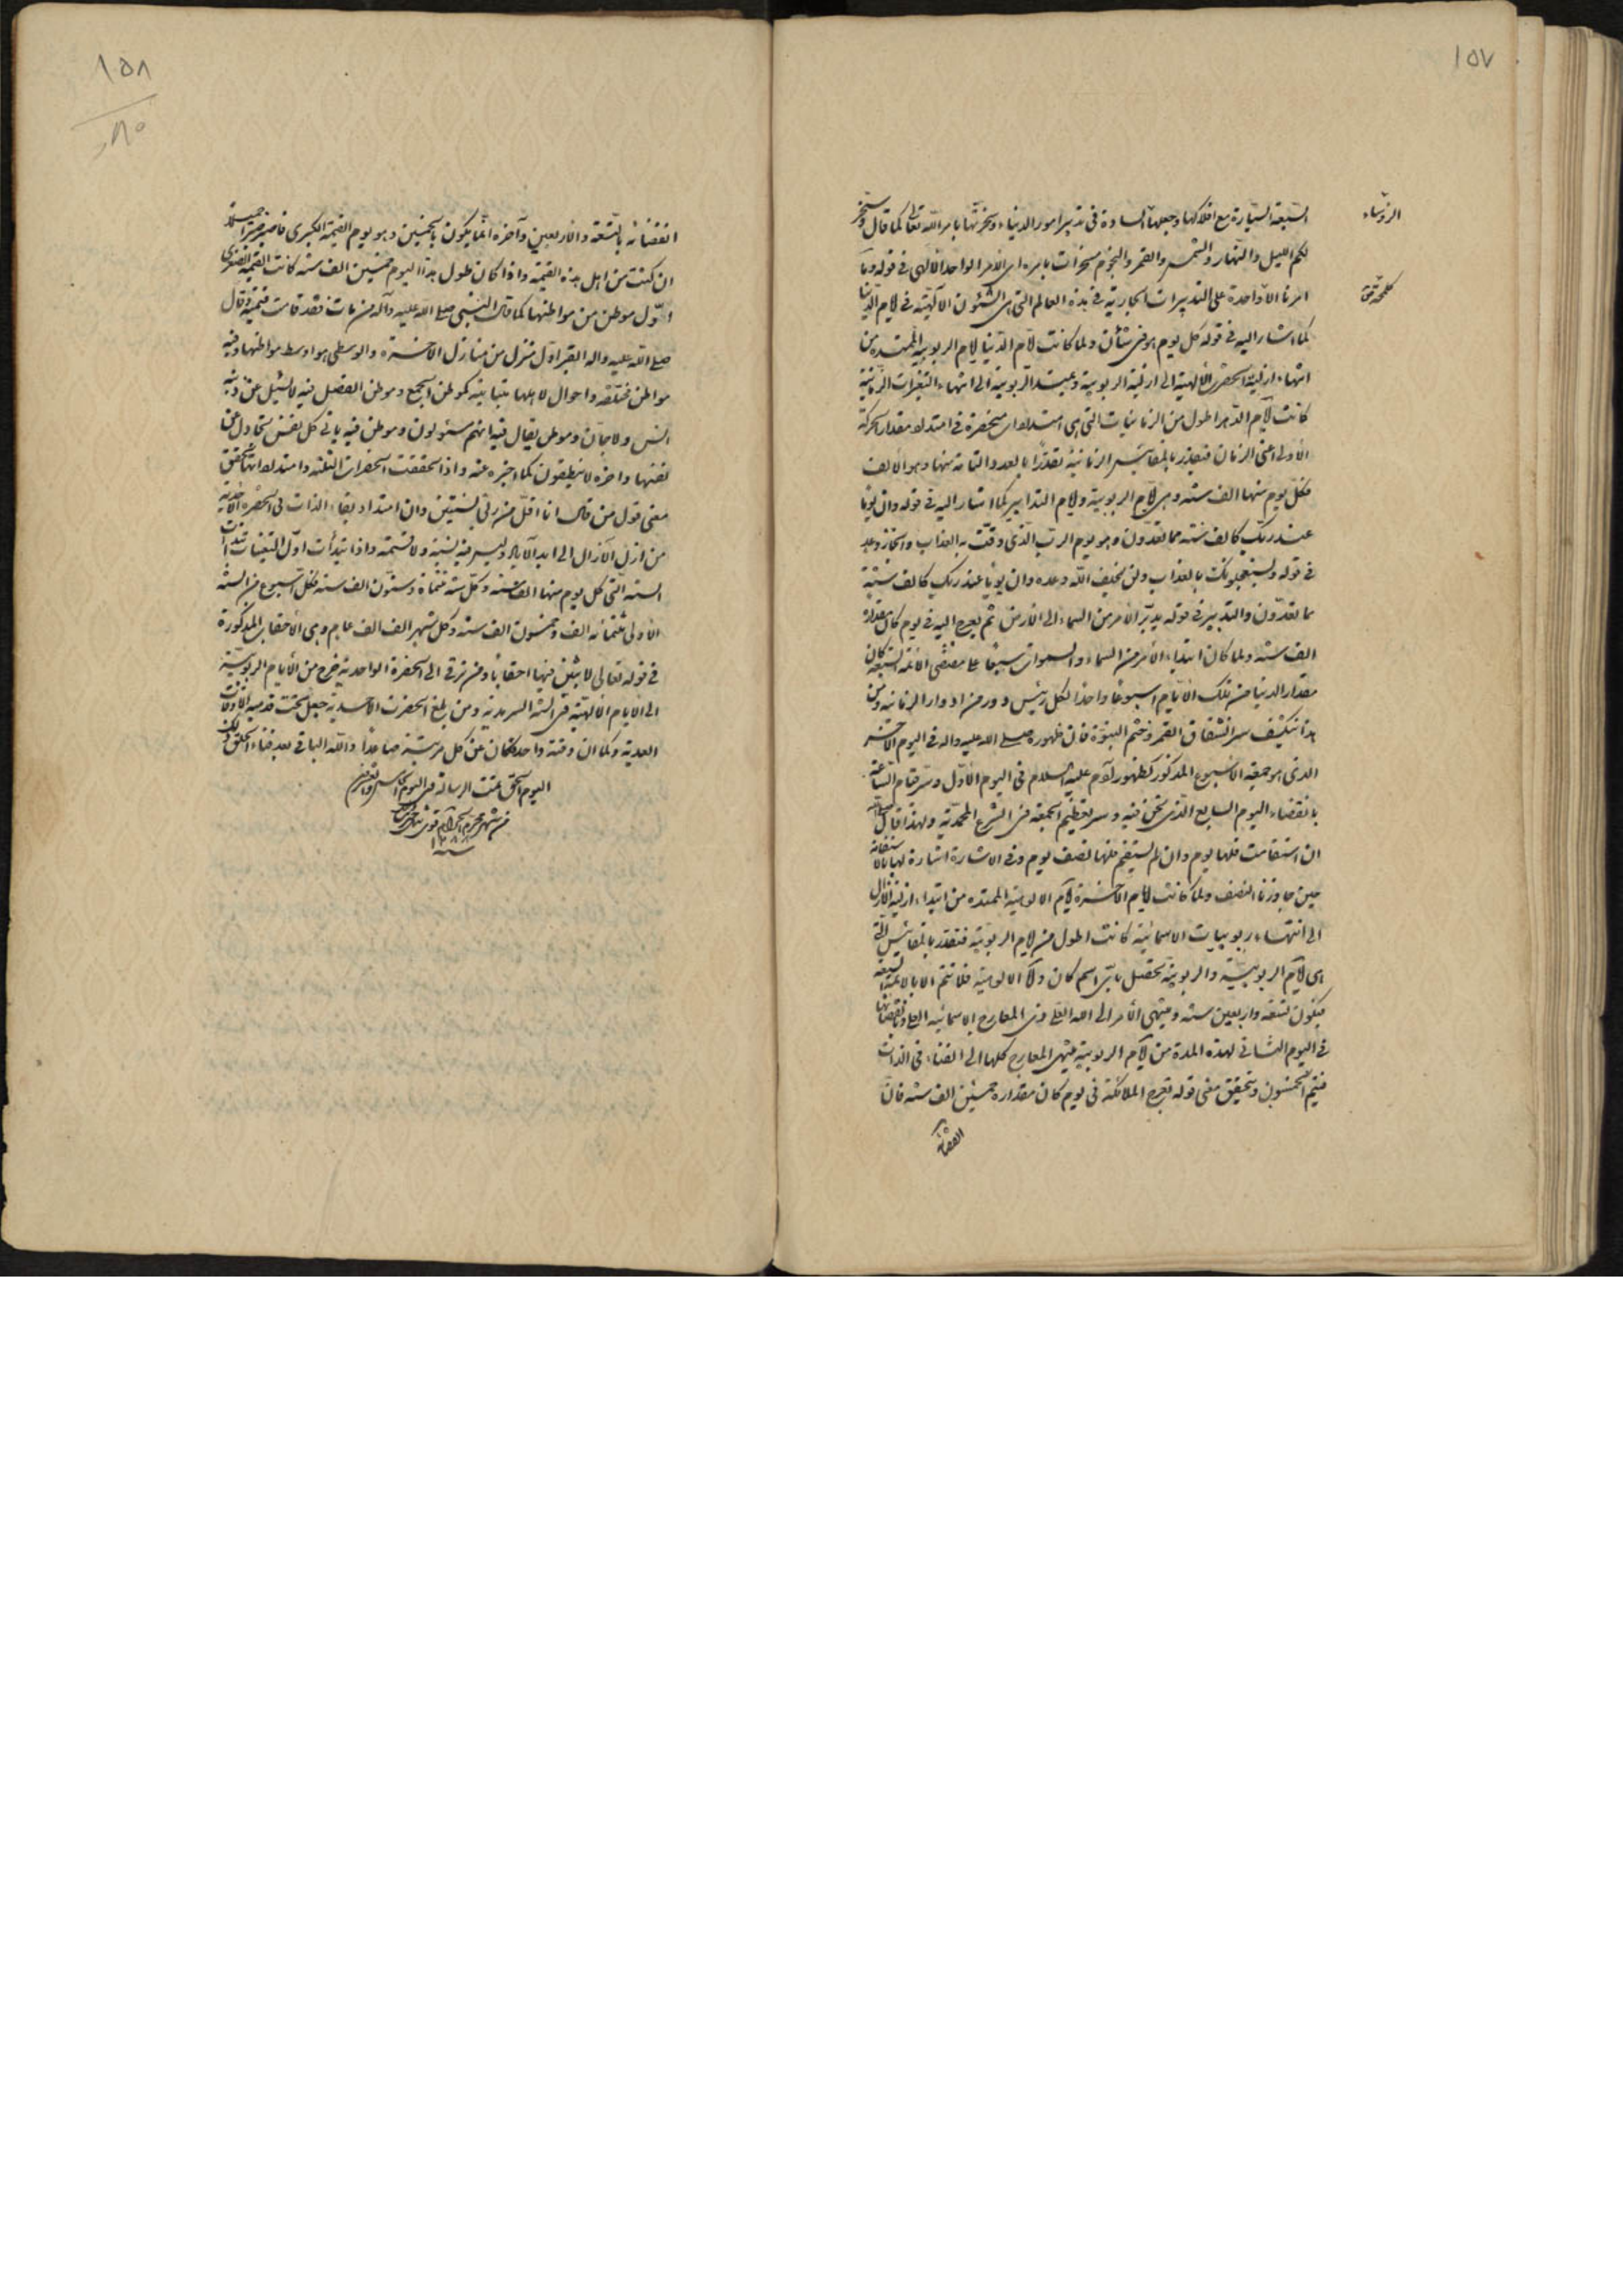 ١٥٧
الرؤساء
السبعة السيارة مع افلاكها وجعلها السادة في تدبير امور الدنيا وسخرتها بامر الله تعالى كما قال وسخر
لكم الليل والنهار والشمس والقمر والنجوم مسخرات بامره اي الأمر الواحد الالهي في قوله وما
كلمح
امرنا الا واحدة على التدبيرات الجارية في هذه العالم التي هي الشئون الآلهية في لايام الدنيا
كما اشار اليه في قوله كل يوم هو في شأن ولما كانت لايام الدنيا لايام الربوبية الممتدة من
انتهاء ازلية الحضرة الالهية الى ازلية الربوبية الى انتهاء التغيرات الزمانية
كانت لايام الدهر اطول من الزمانيات التي هي امتدادات منحصرة في امتداد مقدار الحركة
الأولى اعني الزمان فتقدر بالمقائيس الزمانية تقدرا بالعدد التامة منها وهو الالف
فكل يوم منها الف سنة وهي لايام الربوبية ولايام التدابير كما اشار اليه في قوله وان يوما
عند ربك كالف سنة مما تعدون وهو يوم الرب الذي وقت به العذاب وانجاز وعد
في قوله ويستعجلونك بالعذاب ولن يخلف الله وعده وان يوما عند ربك كالف سنة
مما تعدون والتدبير في قوله يدبر الأمر من السماء الى الارض ثم يعرج اليه في يوم كان مقداره
الف سنة ولما كان ابتداء الأمر من السماء والسموات سبعا على مقتضى الأئمة السبعة كان
مقدار الدنيا من تلك الايام اسبوعا واحدا لكل رئيس دور من ادوار الزمانية ومن
هذا ينكشف سر انشقاق القمر وختم النبوة فان ظهوره صلى الله عليه واله في اليوم الآخر
الذي هو جمعة الاسبوع المذكور كظهور آدم عليه السلام في اليوم الأول وسر قيام الساعة
بانقضاء اليوم السابع الذي نحن فيه وسر تعظيم الجمعة في الشرع المحمدية ولهذا قال
ان استقامت فلها يوم وان لم يستقم فلها نصف يوم وفي الاشارة اشارة لها بالاستقامة
حين جاوزنا النصف ولما كانت لايام الآخرة لايام الالوهية الممتدة من ابتداء ازلية الآزال
الى انتهاء ربوبيات الاسمائية كانت اطول من لايام الربوبية فتقدر بالمقائيس التي
هي لايام الربوبية والربوبية تحصل باي اسم كان ولا الالوهية فلا تتم الا بالائمة السبعة
فيكون تسعة واربعين سنة وينتهي الأمر الى الله العلي ذي المعارج الاسمائية
في اليوم الثاني لهذه المدة من لايام الربوبية ينتهي المعارج كلها الى الفناء في الذات
فيتم الخمسون ويتحقق معنى قوله تعرج الملائكة في يوم كان مقداره خمسين الف سنة فان
انقضائه
١٥٨
٨٠
انقضائه بالتسعة والاربعين وآخره انما يكون بالخمسين وهو يوم القيمة الكبرى فاصبر صبرا جميلا
ان كنت من اهل هذه القيمة واذا كان طول هذا اليوم خمسين الف سنة كانت القيمة الصغرى
اول موطن من مواطنها كما قال النبي صلى الله عليه وآله من مات فقد قامت قيمته وقال
صلى الله عليه واله القبر اول منزل من منازل الآخرة والوسطى هو اوسط مواطنها وفيه
مواطن مختلفة واحوال لاهلها متباينة كموطن الجمع وموطن الفصل فيه لا يسئل عن ذنبه
انس ولا جان وموطن يقال فيه انهم مسئولون وموطن فيه يأتي كل نفس تجادل عن
نفسها وآخره لا ينطقون كما اخبره عنه واذا تحققت الحضرات الثلثة وامتداداتها تحقق
معنى قول من قال انا اقل من ربي بسنتين وان امتداد بقاء الذات في الحضرة الأحدية
من ازل الآزال الى ابد الآباد وليس فيه نسبة ولا قسمة واذا ابتدأت اول التعينات ابتدأت
السنة التي كل يوم منها الف سنة وكل سنة ثلثمائة وستون الف سنة فكل اسبوع من السنة
الاولى ثلثمائة الف وخمسون الف سنة وكل شهر الف الف عام وهي الأحقاب المذكورة
في قوله تعالى لابثين فيها احقابا ومن ترقى الى الحضرة الواحدية خرج من الأيام الربوبية
الى الايام الالهية في السنة السرمدية ومن بلغ الحضرت الاحدية جعل تحت قدميه الاوقات
العددية وكما ان وقته واحد كان عن كل مرتبة صاعدا والله الباقي بعد فناء الخلق
اليوم الحق تمت الرسالة في اليوم
من شهر محرم الحرام
سنة